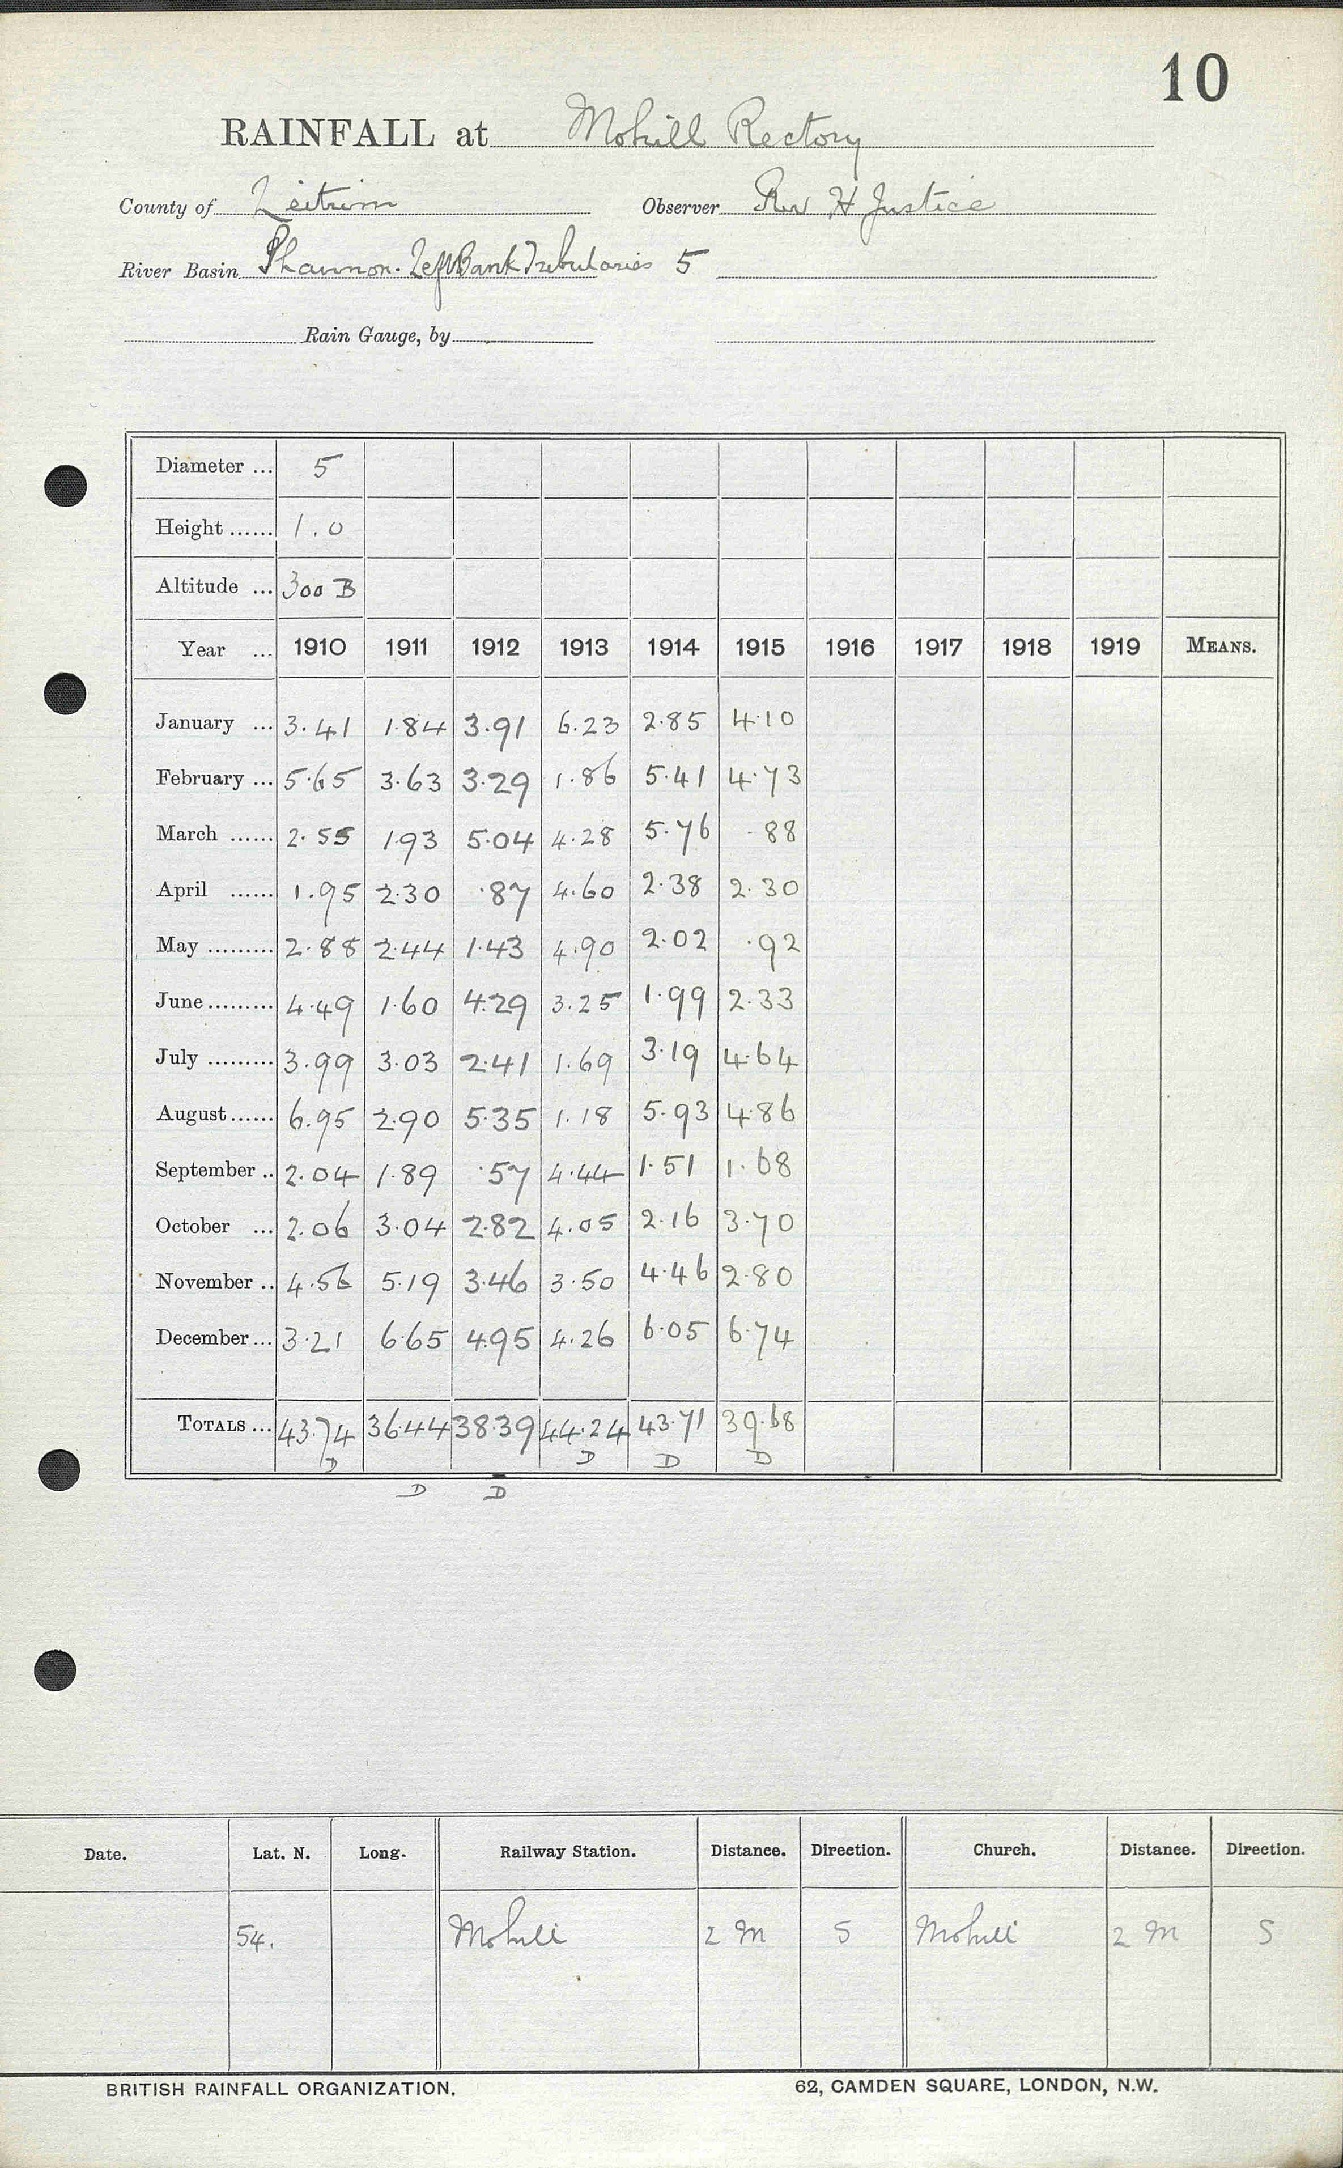 10
RAINFALL at Mohill Rectory
County of Leitrim Observer Rev H Justice
River Basin Shannon. Left Bank Tributaries 5
Rain Gauge, by
Diameter ... 5
Height ...... 1.0
Altitude ... 300 B
Year ... 1910 1911 1912 1913 1914 1915 1916 1917 1918 1919 MEANS.
January ... 3.41 1.84 3.91 6.23 2.85 4.10
February ... 5.65 3.63 3.29 1.86 5.41 4.73
March ...... 2.55 1.93 5.04 4.28 5.76 .88
April ...... 1.95 2.30 .87 4.60 2.38 2.30
May ......... 2.88 2.44 1.43 4.90 2.02 .92
June ......... 4.49 1.60 4.29 3.25 1.99 2.33
July ......... 3.99 3.03 2.41 1.69 3.19 4.64
August ...... 6.95 2.90 5.35 1.18 5.93 4.86
September .. 2.04 1.89 .57 4.44 1.51 1.68
October ... 2.06 3.04 2.82 4.05 2.16 3.70
November .. 4.56 5.19 3.46 3.50 4.46 2.80
December ... 3.21 6.65 4.95 4.26 6.05 6.74
TOTALS ... 43.74 36.44 38.39 44.24 43.71 39.68
D D D D
D D
Date. Lat. N. Long. Railway Station. Distance. Direction. Church. Distance. Direction.
54. Mohill 2 m S Mohill 2 m S
BRITISH RAINFALL ORGANIZATION. 62, CAMDEN SQUARE, LONDON, N.W.